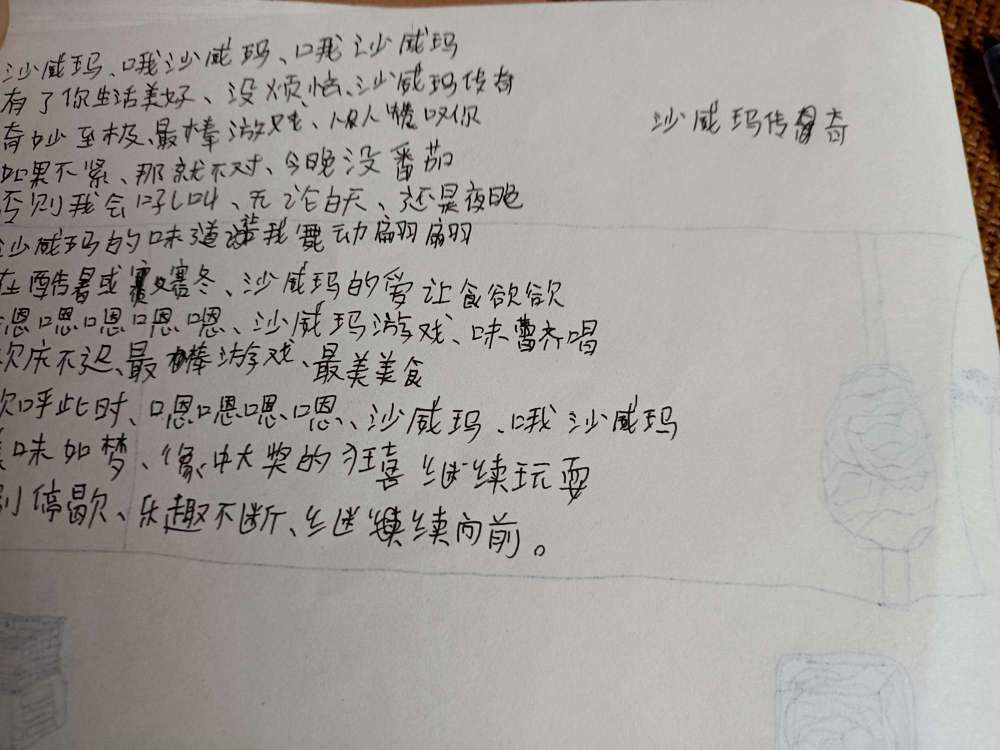 沙威玛、哦沙威玛、哦沙威玛
有了你生活美好、没烦恼、沙威玛传奇
奇妙至极、最棒游戏、众人赞叹你
如果不紧、那就不对、今晚没番茄
否则我会吼叫、无论白天、还是夜晚
沙威玛的味道让我舞动翩翩
在酷暑或寒冬、沙威玛的爱让食欲欲
嗯嗯嗯嗯嗯、沙威玛游戏、味蕾齐唱
庆不迟、最棒游戏、最美美食
欢呼此时、嗯嗯嗯嗯、沙威玛、哦沙威玛
美味如梦、像中大奖的狂喜继续玩耍
别停歇、乐趣不断、继续续向前。
沙威玛传奇